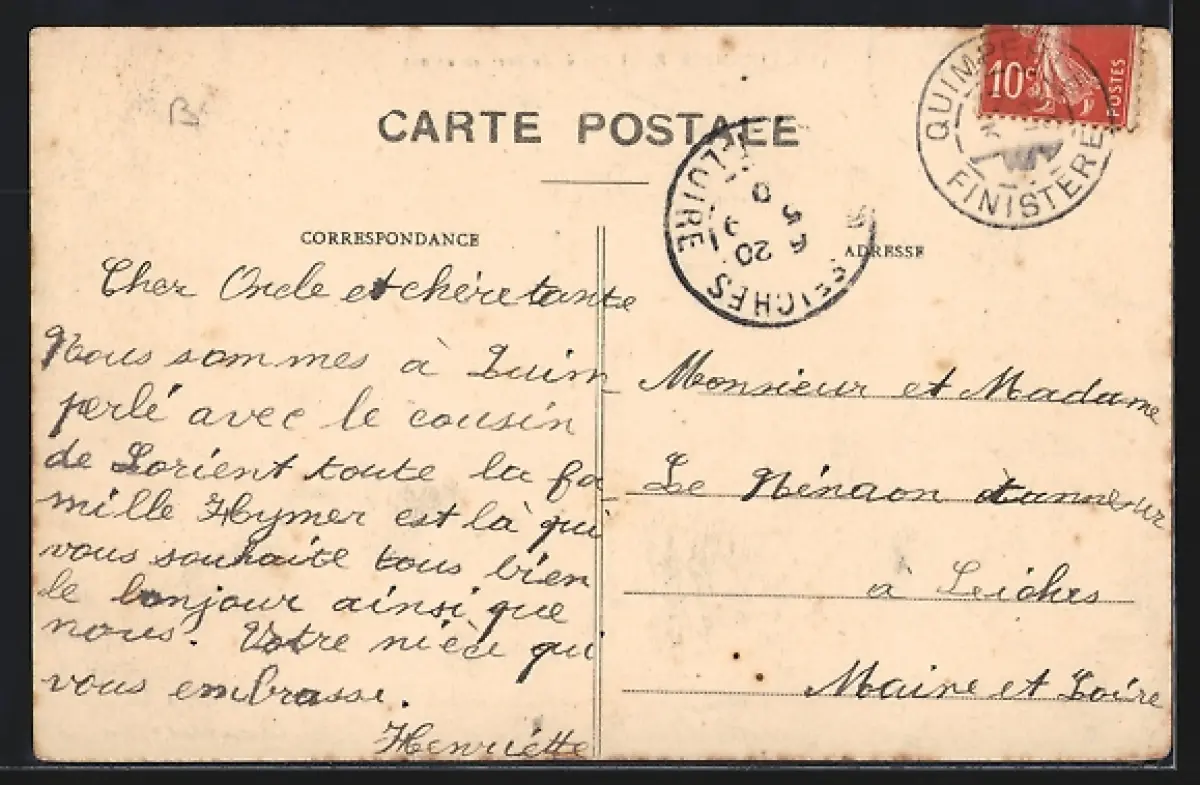 CARTE POSTALE
CORRESPONDANCE
Cher Oncle et chère tante
Nous sommes à Quim
perlé avec le cousin
de Lorient toute la fa
mille Hymer est là qui
vous souhaite tous bien
le bonjour ainsi que
nous. Votre nièce qui
vous embrasse.
Henriette
ADRESSE
Monsieur et Madame
Le Nénaon tanneur
à Seiches
Maine et Loire
10c
POSTES
QUIMPE
FINISTERE
SEICHES
LOIRE
20